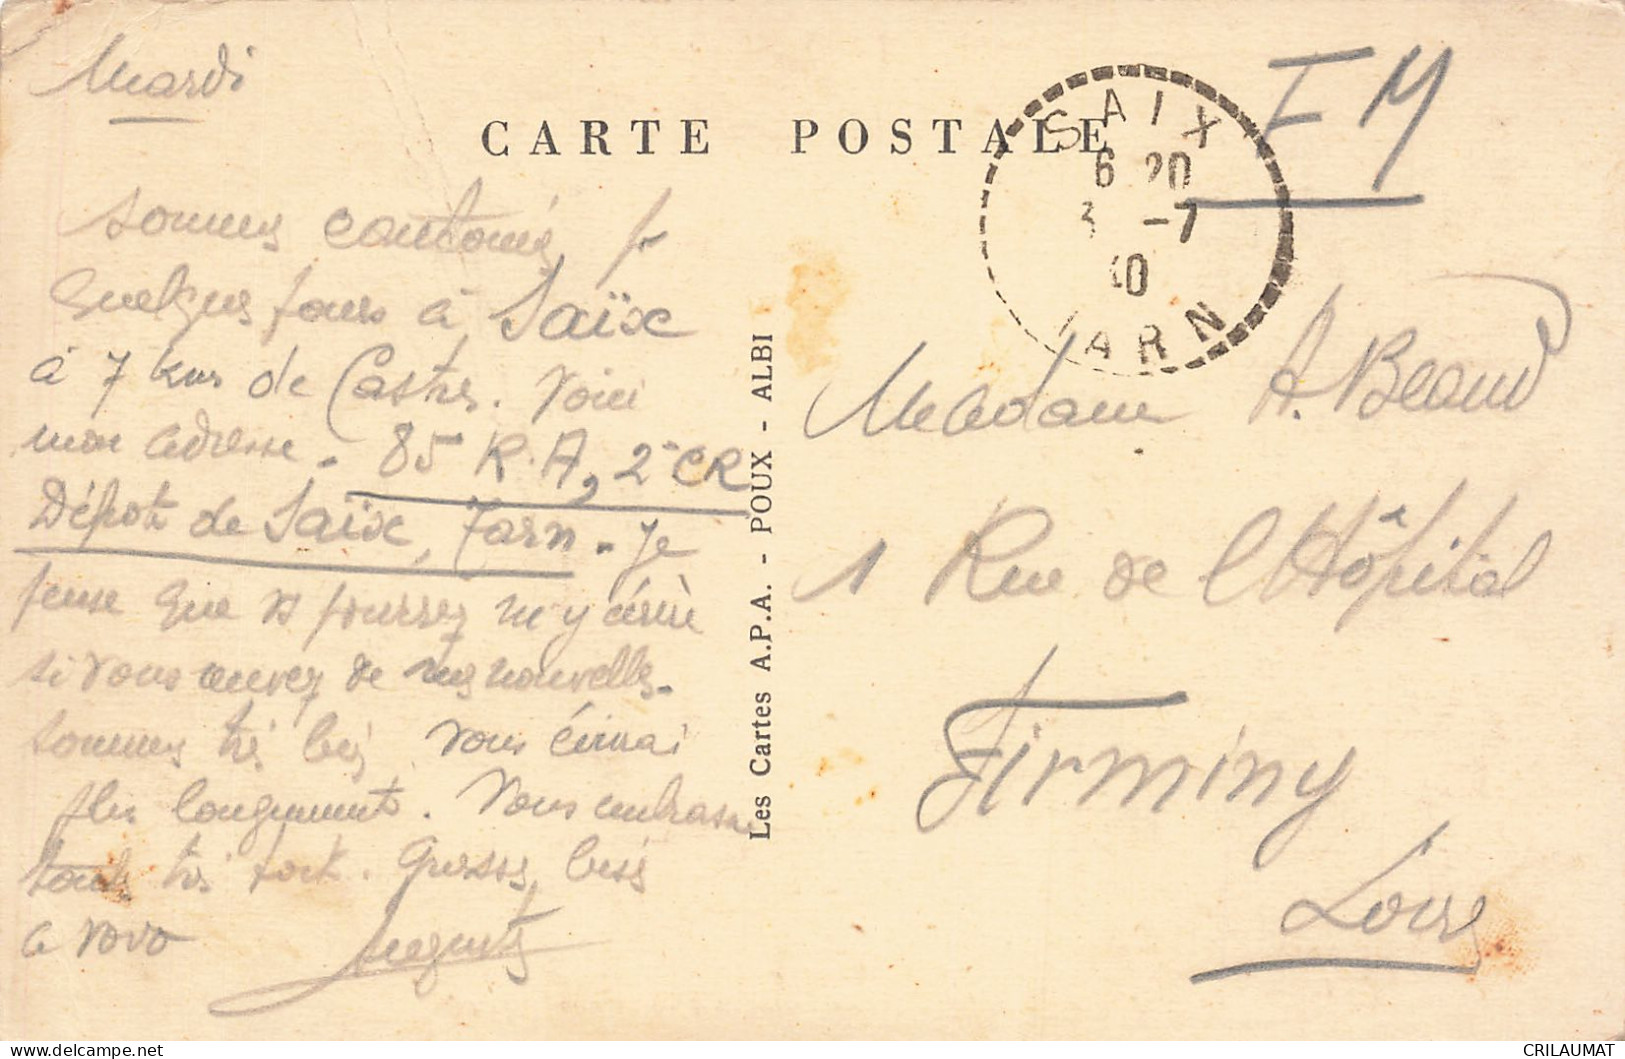 Mardi
CARTE POSTALE
SAIX
6 20
3 -7
40
TARN
FM
sommes cantonnés pr
quelques jours à Saïx
à 7 kms de Castres. Voici
mon adresse - 85 R.A, 2e CR
Dépôt de Saïx, Tarn - Je
pense que vs pourrez m'y écrire
si vous avez de mes nouvelles -
sommes très bien Vous écrirai
plus longuement. Vous embrasse
toutes très fort. Grosses bises
a vovo
Auguste
Les Cartes A.P.A. - POUX - ALBI
Madame A. Beaud
1 Rue de l'Hôpital
Firminy
Loire
CRILAUMAT
delcampe.net